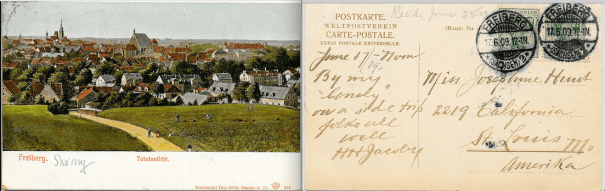 Freiberg. Saxony Totalansicht.
POSTKARTE.
WELTPOSTVEREIN
CARTE-POSTALE.
UNION POSTALE UNIVERSELLE.
Recd. June 28
FREIBERG
17.6.09.12-1N.
(SACHSEN)
FREIBERG
17.6.09.12-1N.
(SACHSEN)
June 17/09 - Noon
By my
"lonely"
on a side trip
folks all
well
HH Jacoby
Miss Josephine Hunt
2219 California
St. Louis Mo
Amerika